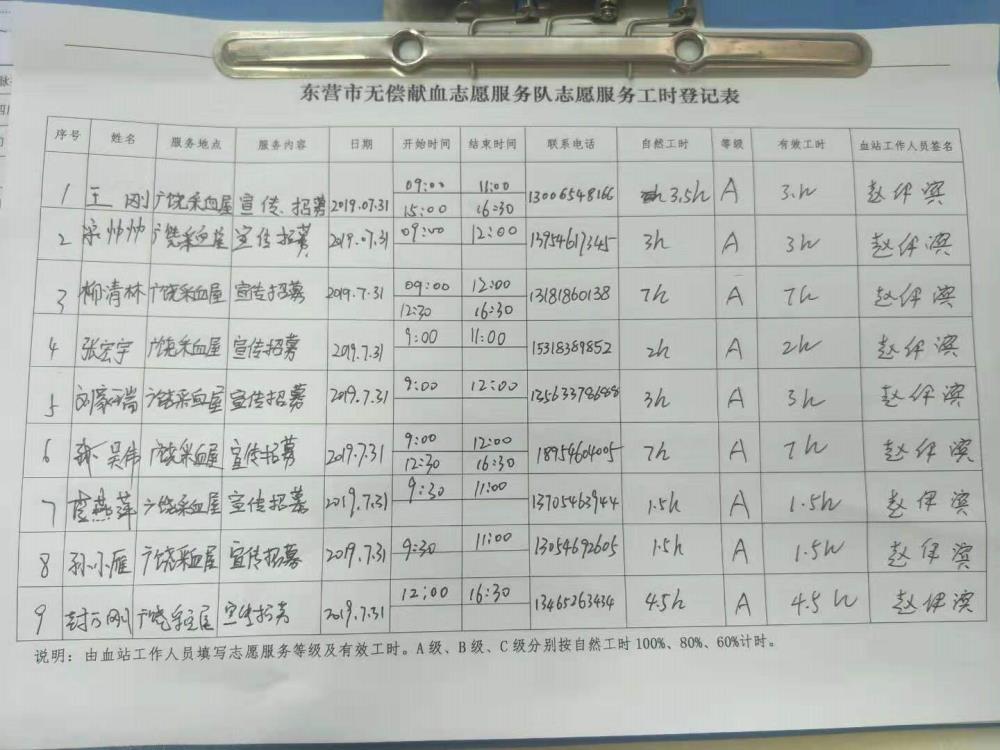 东营市无偿献血志愿服务队志愿服务工时登记表
序号 姓名 服务地点 服务内容 日期 开始时间 结束时间 联系电话 自然工时 等级 有效工时 血站工作人员签名
1 王刚 广饶采血屋 宣传、招募 2019.07.31 09:00 11:00 13006548166 3.5h A 3.h 赵伊滨
15:00 16:30
2 帅帅 广饶采血屋 宣传招募 2019.07.31 09:00 12:00 13954617345 3h A 3h 赵伊滨
3 柳清林 广饶采血屋 宣传招募 2019.7.31 09:00 12:00 13181860138 7h A 7h 赵伊滨
12:30 16:30
4 张宏宇 广饶采血屋 宣传招募 2019.7.31 9:00 11:00 15318389852 2h A 2h 赵伊滨
5 刘家瑞 广饶采血屋 宣传招募 2019.7.31 9:00 12:00 13563378688 3h A 3h 赵伊滨
6 吴伟 广饶采血屋 宣传招募 2019.7.31 9:00 12:00 18954604005 7h A 7h 赵伊滨
12:30 16:30
7 燕萍 广饶采血屋 宣传招募 2019.7.31 9:30 11:00 13705463944 1.5h A 1.5h 赵伊滨
8 孙小雁 广饶采血屋 宣传招募 2019.7.31 9:30 11:00 13054692605 1.5h A 1.5h 赵伊滨
9 封万刚 广饶采血屋 宣传招募 2019.7.31 12:00 16:30 13465263434 4.5h A 4.5h 赵伊滨
说明：由血站工作人员填写志愿服务等级及有效工时。A级、B级、C级分别按自然工时100%、80%、60%计时。